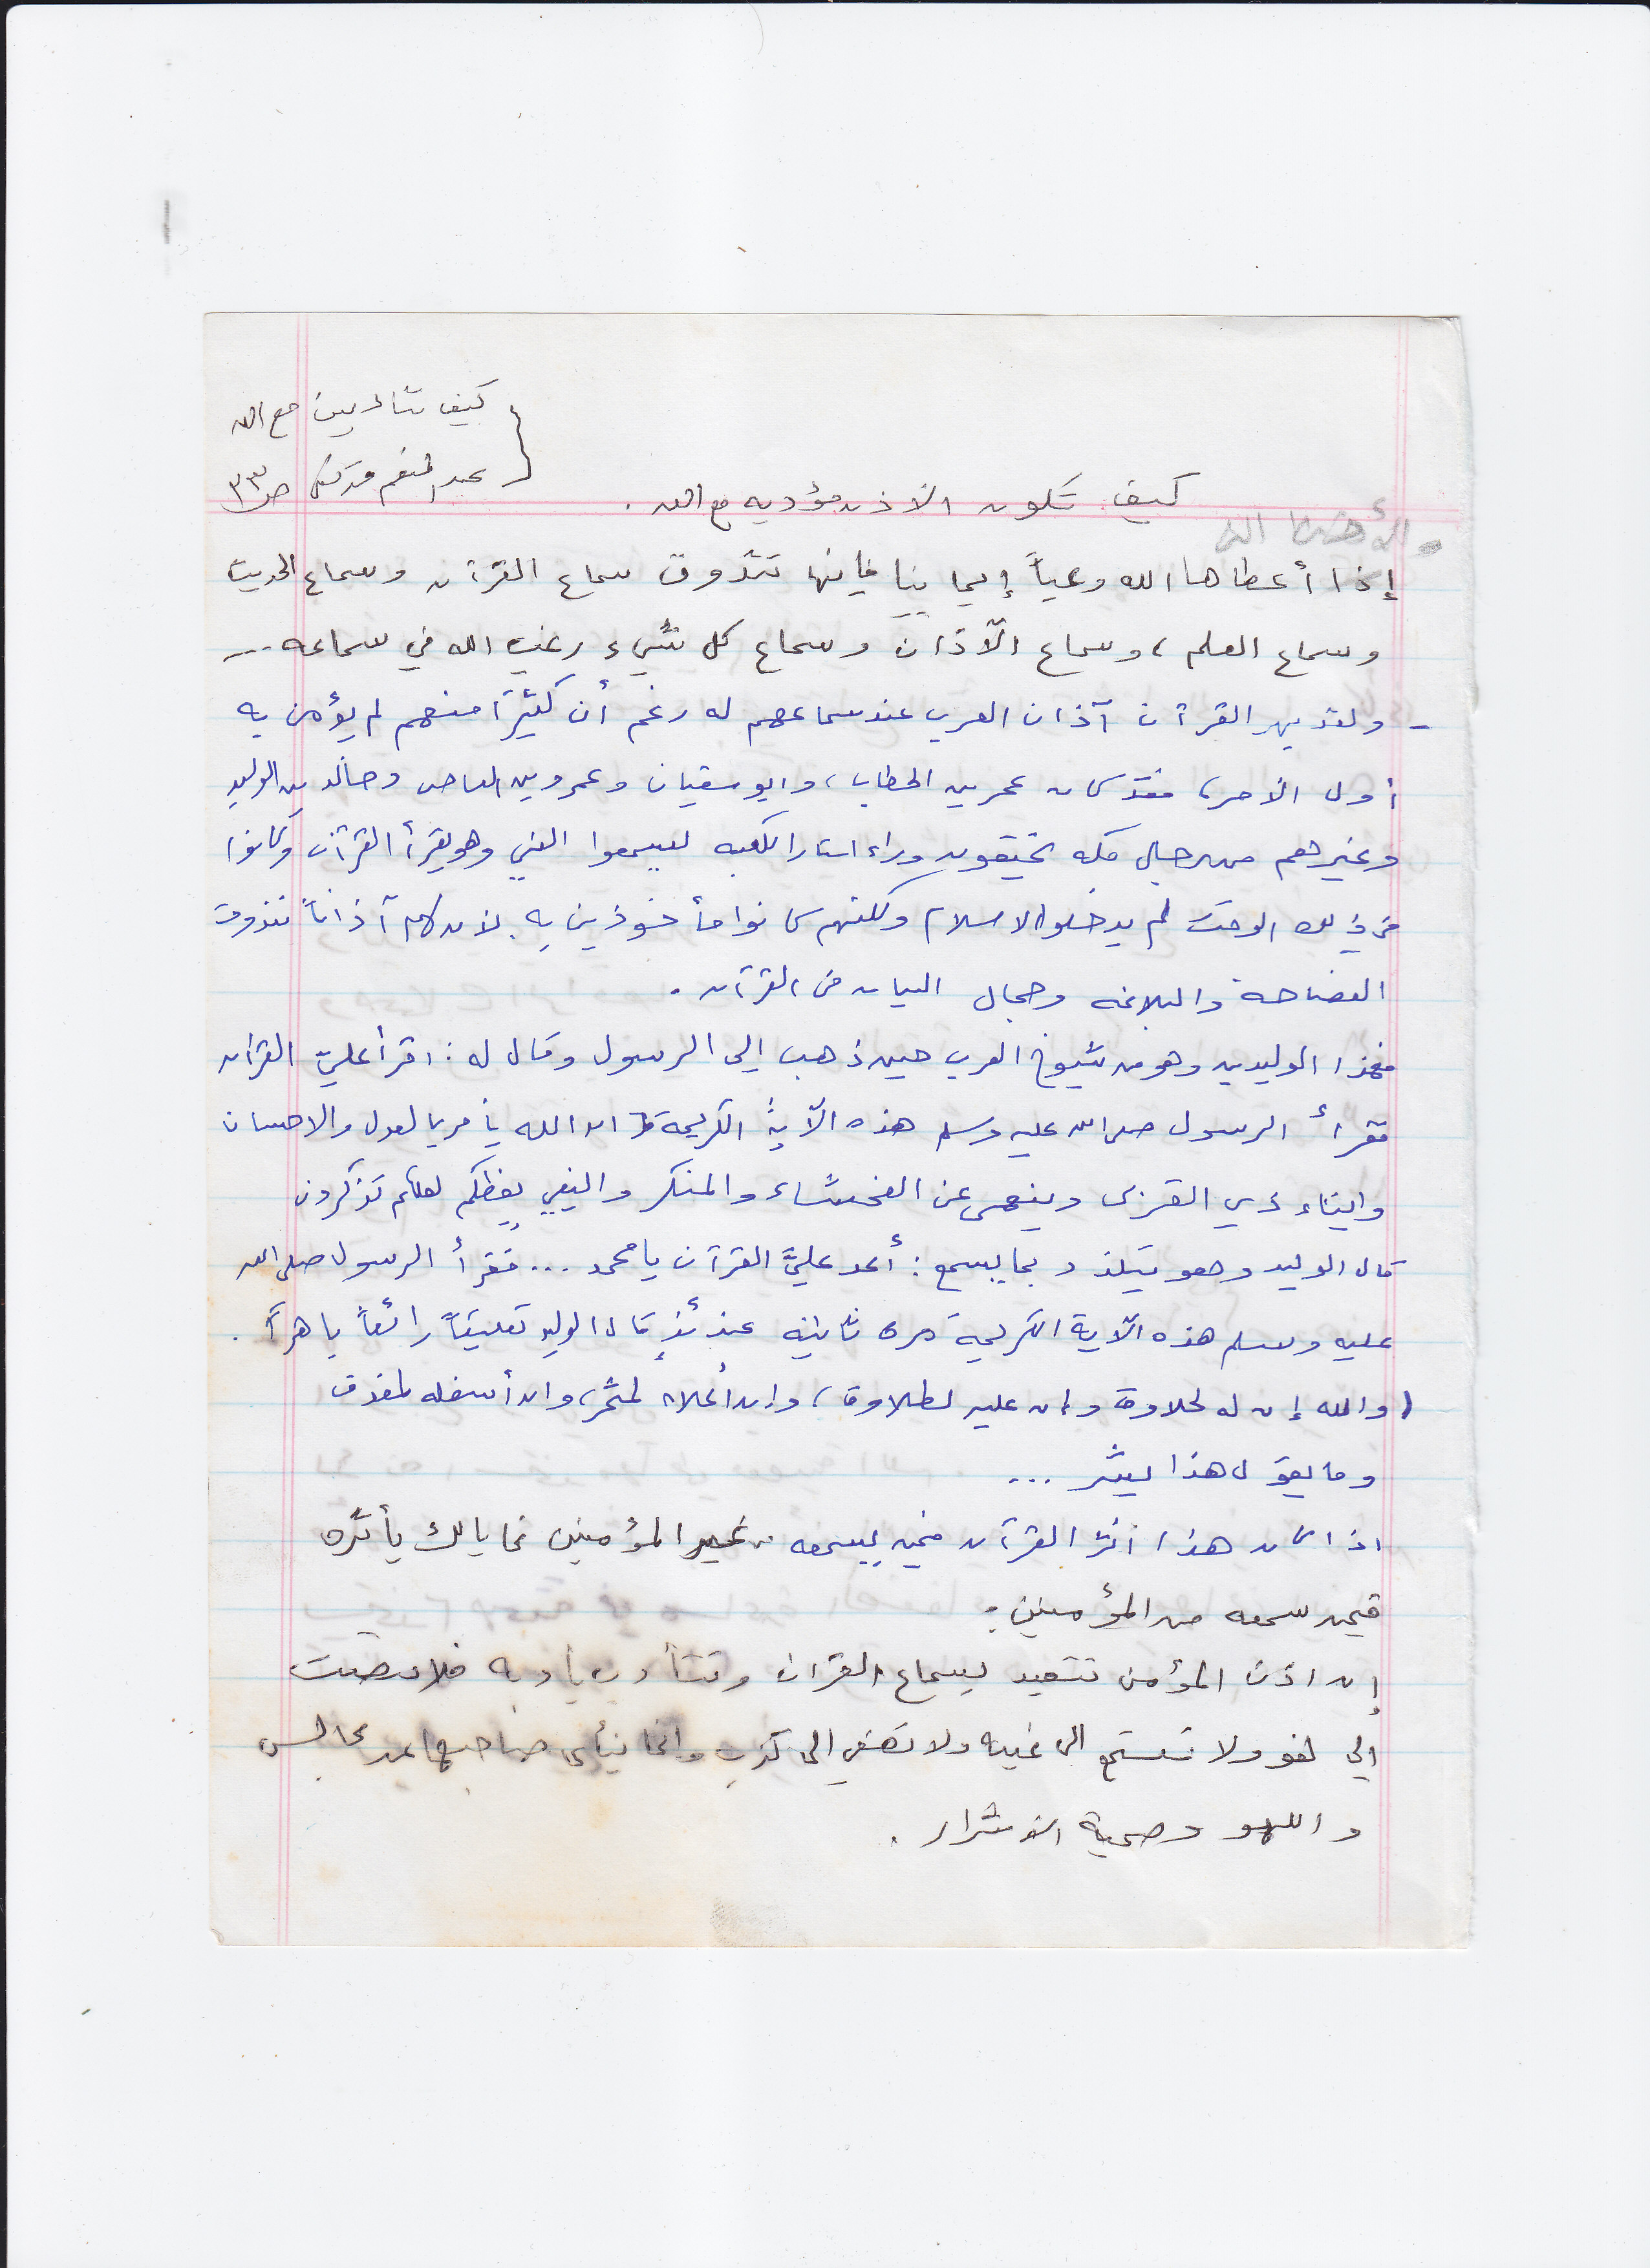 كيف نتأدب مع الله
عبد المنعم قنديل ص ٣٣
كيف تكون الأذن مؤدبه مع الله .
إذا أعطاها الله وعياً إيمانيا فإنها تتذوق سماع القرآن وسماع الحديث
وسماع العلم ، وسماع الآذان وسماع كل شيء رغب الله في سماعه ...
- ولقد بهر القرآن آذان العرب عند سماعهم له رغم أن كثيراً منهم لم يؤمن به
أول الأمر ، فقد كان عمر بن الخطاب ، وابو سفيان وعمرو بن العاص وخالد بن الوليد
وغيرهم من رجال مكه يختفون وراء استار الكعبه ليسمعوا النبي وهو يقرأ القرآن وكانوا
في ذلك الوقت لم يدخلوا الاسلام ولكنهم كانوا مأخوذين به لأن لهم آذاناً تتذوق
الفصاحة والبلاغه وجمال البيان في القرآن .
فهذا الوليد بن وهو من شيوخ العرب حين ذهب إلى الرسول وقال له : اقرأ عليّ القرآن
فقرأ الرسول صلى الله عليه وسلم هذه الآية الكريمة ان الله يأمر بالعدل والاحسان
وايتاء ذي القربى وينهى عن الفحشاء والمنكر والبغي يعظكم لعلكم تذكرون
قال الوليد وهو يتلذذ بما يسمع : أعد عليَّ القرآن يا محمد ... فقرأ الرسول صلى الله
عليه وسلم هذه الآية الكريمة مرة ثانيه عندئذٍ قال الوليد تعليقاً رائعاً باهراً .
( والله إن له لحلاوة وإن عليه لطلاوة ، وإن أعلاه لمثمر ، وان أسفله لمغدق
وما يقول هذا بشر ...
اذا كان هذا اثر القرآن فيمن يسمعه من غير المؤمنين فما بالك بأثره
فيمن سمعه من المؤمنين .
إن اذن المؤمن تتعبد بسماع القرآن وتتأدب بأدبه فلا تنصت
إلى لغو ولا تستمع الى غيبه ولا تصغي الى كذب وانما ينأى صاحبها عن مجالس
واللهو وصحبة الاشرار .